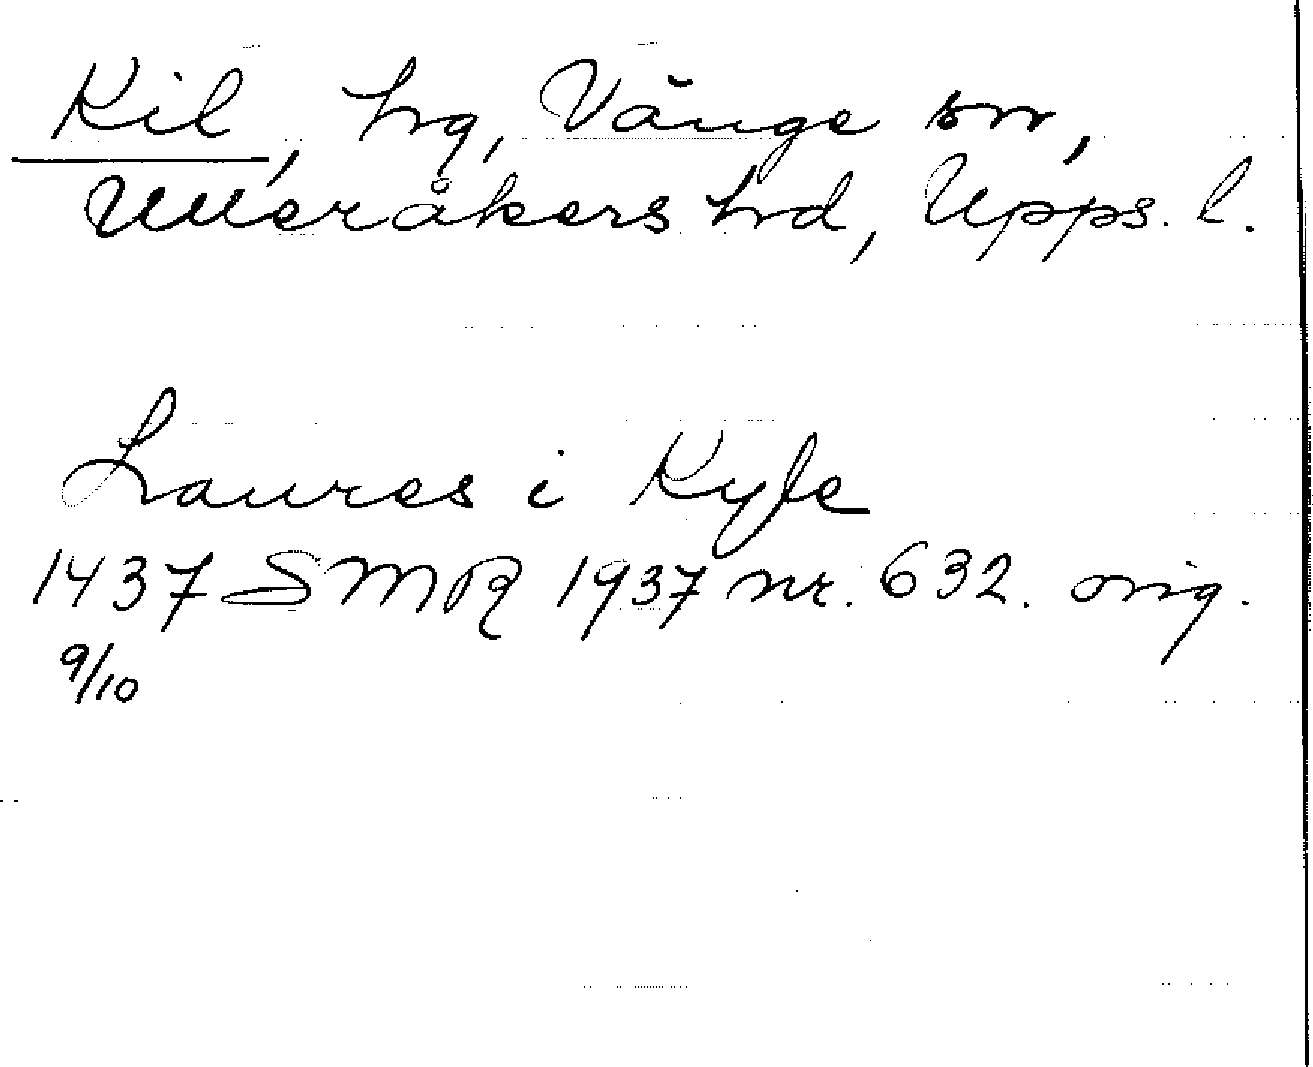 Kil, hg, Vänge sn,
Ulleråkers hd, Upps. l.
Laures i Kyle
1437 SMR 1937 nr. 632. orig.
9/10